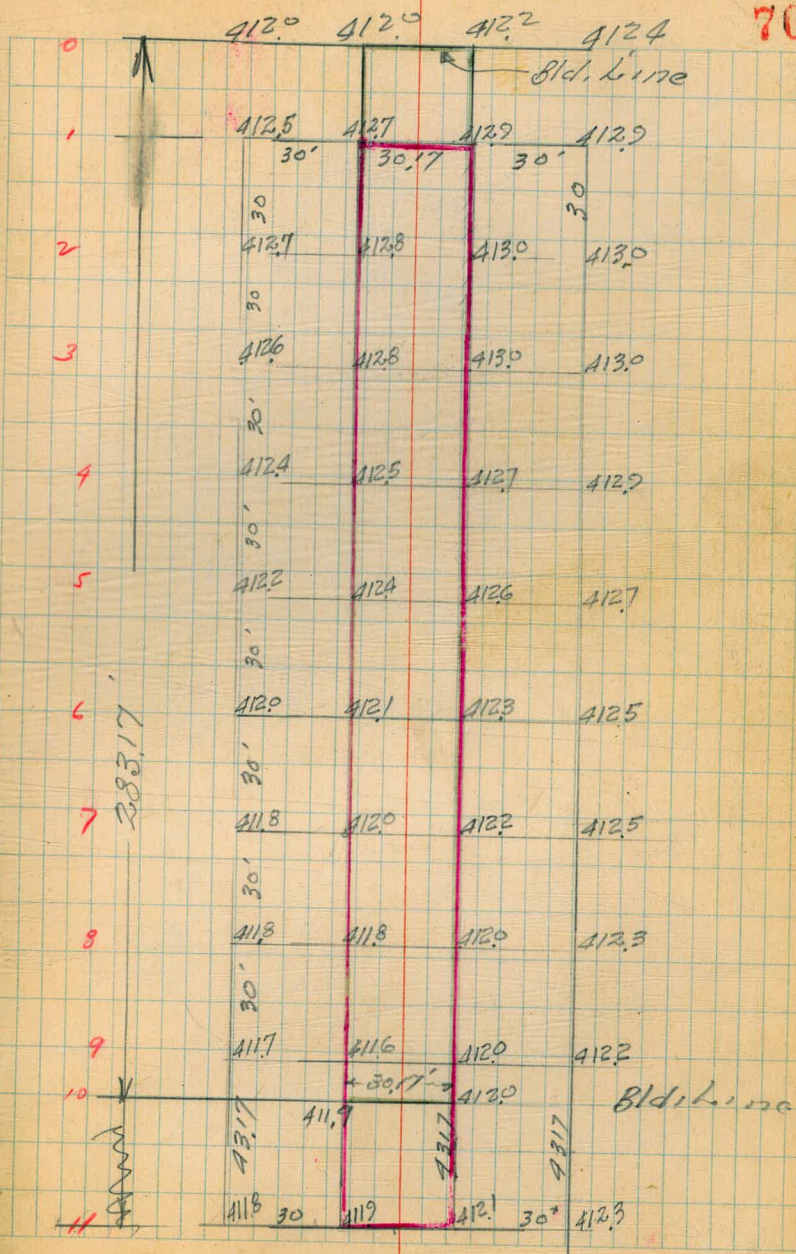 70
0 412.0 412.0 412.2 412.4
Bld. Line
1 412.5 412.7 412.9 412.9
30' 30.17 30'
30 30
2 412.7 412.8 413.0 413.0
30
3 412.6 412.8 413.0 413.0
30'
4 412.4 412.5 412.7 412.9
30'
5 412.2 412.4 412.6 412.7
30'
6 412.0 412.1 412.3 412.5
283.17'
30'
7 411.8 412.0 412.2 412.5
30'
8 411.8 411.8 412.0 412.3
30'
9 411.7 411.6 412.0 412.2
30.17'
10 411.9 412.0 Bld. Line
43.17 43.17 43.17
11 411.8 30 411.9 412.1 30' 412.3